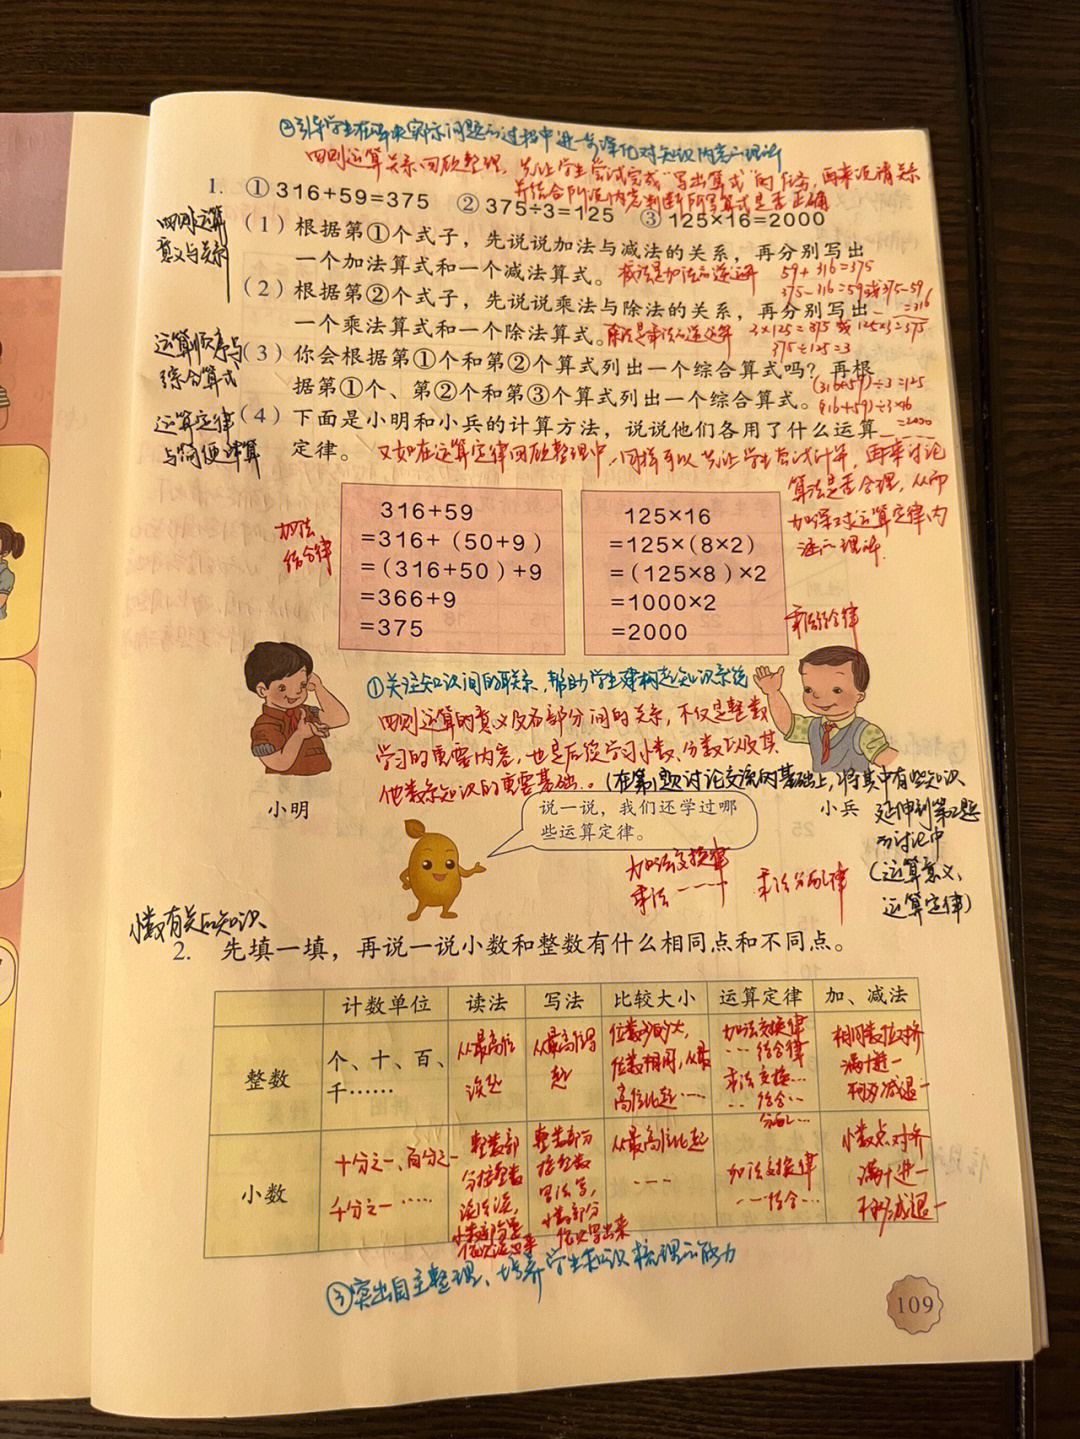 ②引导学生在解决实际问题的过程中进一步深化对知识内容的理解
四则运算关系回顾整理，先让学生尝试完成“写出算式”的任务，再来说清关系
并结合所说内容判断所写算式是否正确
1. ①316+59=375 ②375÷3=125 ③125×16=2000
四则运算
意义与关系
(1) 根据第①个式子，先说说加法与减法的关系，再分别写出
一个加法算式和一个减法算式。
减法是加法的逆运算
59+316=375
375-316=59或375-59
=316
(2) 根据第②个式子，先说说乘法与除法的关系，再分别写出
一个乘法算式和一个除法算式。
除法是乘法的逆运算
3×125=375 或 125×3=375
375÷125=3
运算顺序与
综合算式
(3) 你会根据第①个和第②个算式列出一个综合算式吗？再根
据第①个、第②个和第③个算式列出一个综合算式。
(316+59)÷3=125
(316+59)÷3×16
=2000
运算定律
与简便计算
(4) 下面是小明和小兵的计算方法，说说他们各用了什么运算
定律。
又如在运算定律回顾整理中，同样可以先让学生尝试计算，再来讨论
算法是否合理，从而
加深对运算定律内
涵的理解.
加法
结合律
316+59
=316+(50+9)
=(316+50)+9
=366+9
=375
125×16
=125×(8×2)
=(125×8)×2
=1000×2
=2000
乘法结合律
①关注知识间的联系，帮助学生建构起知识系统
四则运算的意义及各部分间的关系，不仅是整数
学习的重要内容，也是后续学习小数、分数以及其
他数系知识的重要基础。
(在第1题讨论交流的基础上，将其中有些知识
延伸到第2题
的讨论中
(运算意义、
运算定律)
小明
小兵
说一说，我们还学过哪
些运算定律。
加法交换律
乘法
乘法分配律
小数有关的知识
2. 先填一填，再说一说小数和整数有什么相同点和不同点。
计数单位 读法 写法 比较大小 运算定律 加、减法
整数
个、十、百、
千……
从最高位
读起
从最高位写
起
位数多的大，
位数相同，从最
高位比起……
加法交换律
…结合律
乘法交换…
…结合…
分配…
相同数位对齐
满十进一
不够减退一
小数
十分之一、百分之一
千分之一……
整数部
分按整数
读法读，
小数部分是
依次读出来
整数部分
按整数
写法写，
小数部分
依次写出来
从最高位比起
加法交换律
…结合…
小数点对齐
满十进一
不够减退一
③突出自主整理、培养学生知识梳理的能力
109